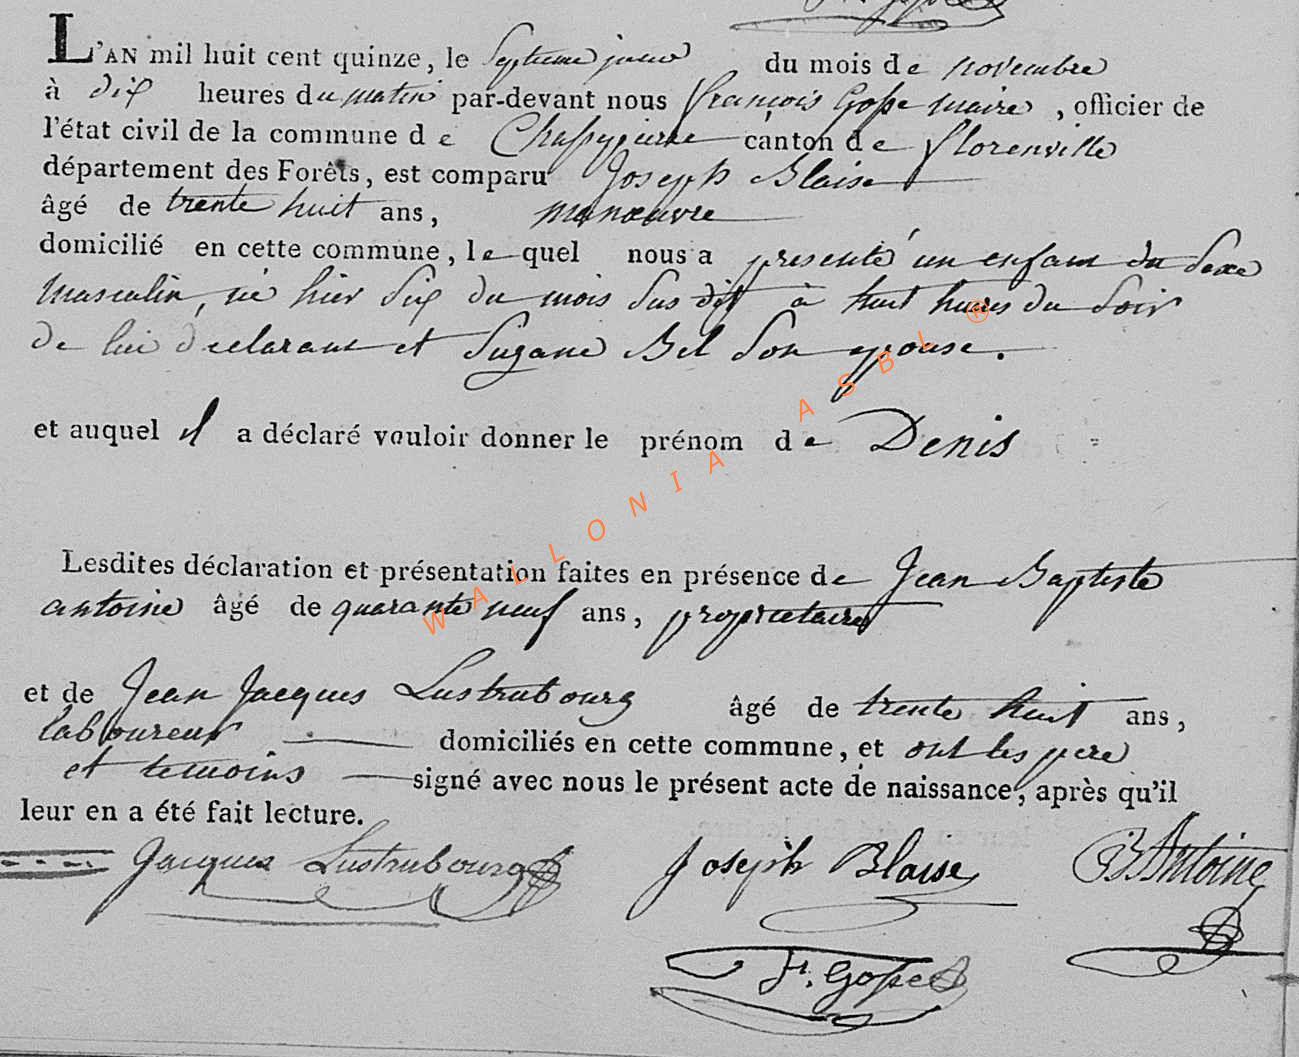 L'AN mil huit cent quinze, le Septieme jour du mois de novembre
à dix heures du matin par-devant nous françois Gosse maire, officier de
l'état civil de la commune de Chassepierre canton de florenville
département des Forêts, est comparu Joseph Blaise
âgé de trente huit ans, manœuvre
domicilié en cette commune, lequel nous a presenté un enfant du Sexe
masculin, né hier Six du mois Sus dit à huit heures du Soir
de lui déclarant et Suzane Bel Son epouse.
et auquel il a déclaré vouloir donner le prénom de Denis
Lesdites déclaration et présentation faites en présence de Jean Baptiste
antoine âgé de quarante neuf ans, proprietaire
et de Jean Jacques Lustrubourg âgé de trente huit ans,
laboureur domiciliés en cette commune, et ont les pere
et temoins signé avec nous le présent acte de naissance, après qu'il
leur en a été fait lecture.
Jacques Lustrubourg Joseph Blaise B Antoine
fr. Gosse
WALLONIA ASBL ®